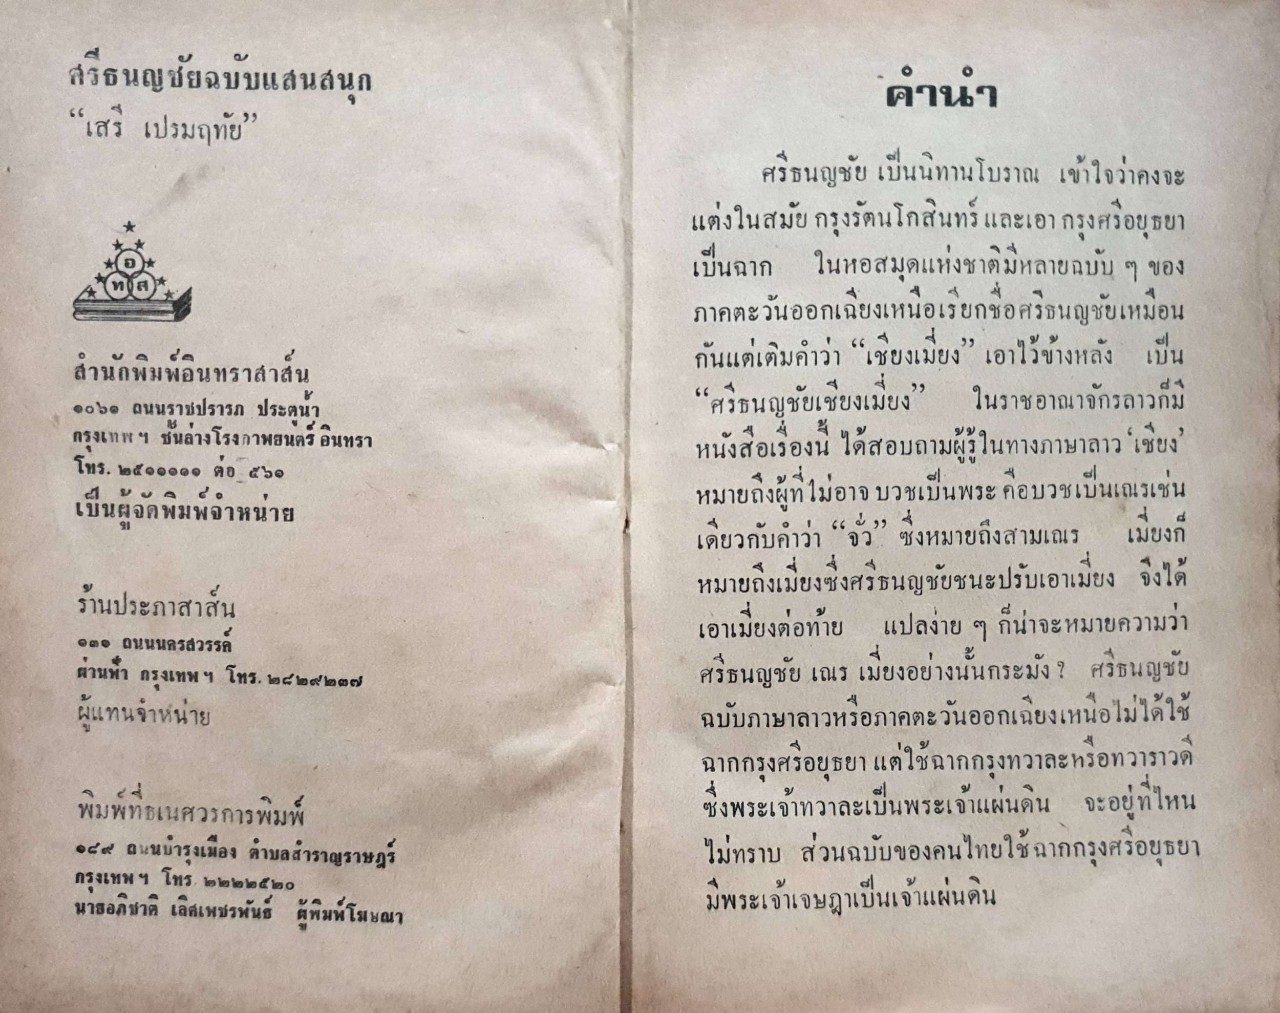 ศรีธนญชัยฉบับแสนสนุก
“เสรี เปรมฤทัย”
อ
ท ส
สำนักพิมพ์อินทราสาส์น
๑๐๖๑ ถนนราชปรารภ ประตูน้ำ
กรุงเทพ ฯ ชั้นล่างโรงภาพยนตร์ อินทรา
โทร. ๒๕๑๑๑๑๑ ต่อ ๕๖๑
เป็นผู้จัดพิมพ์จำหน่าย
ร้านประภาสาส์น
๑๓๑ ถนนนครสวรรค์
ผ่านฟ้า กรุงเทพ ฯ โทร. ๒๘๒๙๒๓๗
ผู้แทนจำหน่าย
พิมพ์ที่ธเนศวรการพิมพ์
๑๘๙ ถนนบำรุงเมือง ตำบลสำราญราษฎร์
กรุงเทพ ฯ โทร ๒๒๒๒๕๒๐
นายอภิชาติ เลิศเพชรพันธ์ ผู้พิมพ์โฆษณา
คำนำ
ศรีธนญชัย เป็นนิทานโบราณ เข้าใจว่าคงจะ
แต่งในสมัย กรุงรัตนโกสินทร์ และเอา กรุงศรีอยุธยา
เป็นฉาก ในหอสมุดแห่งชาติมีหลายฉบับ ๆ ของ
ภาคตะวันออกเฉียงเหนือเรียกชื่อศรีธนญชัยเหมือน
กันแต่เติมคำว่า “เชียงเมี่ยง” เอาไว้ข้างหลัง เป็น
“ศรีธนญชัยเชียงเมี่ยง” ในราชอาณาจักรลาวก็มี
หนังสือเรื่องนี้ ได้สอบถามผู้รู้ในทางภาษาลาว ‘เชียง’
หมายถึงผู้ที่ไม่อาจ บวชเป็นพระ คือบวชเป็นเณรเช่น
เดียวกับคำว่า “จั่ว” ซึ่งหมายถึงสามเณร เมี่ยงก็
หมายถึงเมี่ยงซึ่งศรีธนญชัยชนะปรับเอาเมี่ยง จึงได้
เอาเมี่ยงต่อท้าย แปลง่าย ๆ ก็น่าจะหมายความว่า
ศรีธนญชัย เณร เมี่ยงอย่างนั้นกระมัง ? ศรีธนญชัย
ฉบับภาษาลาวหรือภาคตะวันออกเฉียงเหนือไม่ได้ใช้
ฉากกรุงศรีอยุธยา แต่ใช้ฉากกรุงทวาละหรือทวาราวดี
ซึ่งพระเจ้าทวาละเป็นพระเจ้าแผ่นดิน จะอยู่ที่ไหน
ไม่ทราบ ส่วนฉบับของคนไทยใช้ฉากกรุงศรีอยุธยา
มีพระเจ้าเจษฎาเป็นเจ้าแผ่นดิน